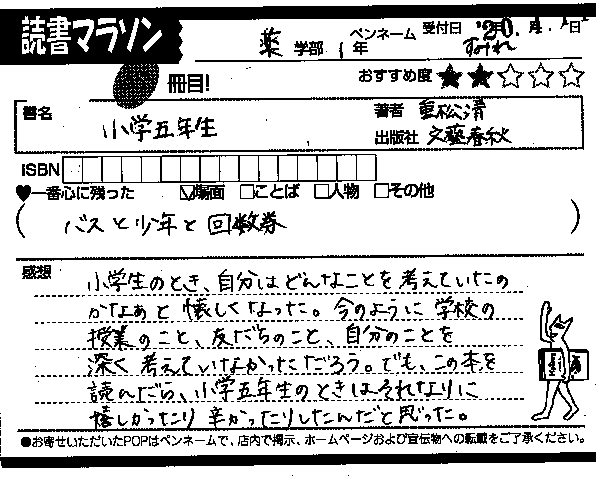 読書マラソン
薬 学部 1 年 ペンネーム すみれ 受付日
冊目!
おすすめ度 ★★☆☆☆
書名 小学五年生
著者 重松清
出版社 文藝春秋
ISBN
♥一番心に残った ☑場面 □ことば □人物 □その他
(バスと少年と回数券)
感想
小学生のとき、自分はどんなことを考えていたの
かなぁと懐しくなった。今のように学校の
授業のこと、友だちのこと、自分のことを
深く考えていなかっただろう。でも、この本を
読んだら、小学五年生のときはそれなりに
懐しかったり辛かったりしたんだと思った。
●お寄せいただいたPOPはペンネームで、店内で掲示、ホームページおよび宣伝物への転載をご了承ください。